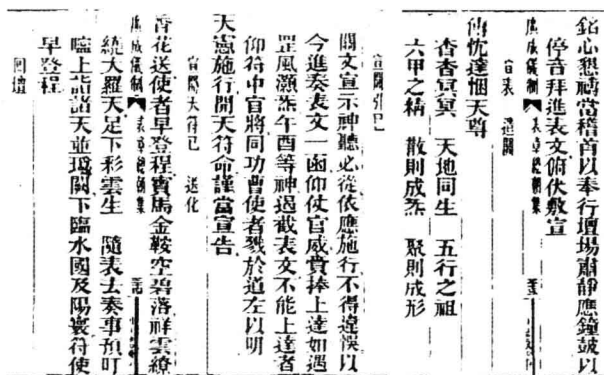 銘心懇禱當稽首以奉行壇場肅靜應鐘鼓以
停音拜進表文俯伏敷宣
宣表 遣關
廣成儀制 表章總朝集
仙忱達悃天尊
杳杳冥冥 天地同生 五行之祖
六甲之精 散則成炁 聚則成形
宣關引巳
關文宣示神聽必從依應施行不得違悞以
今進奏表文一函仰仗官威賫捧上達如遇
罡風灝炁午酉等神遏截表文不能上達者
仰符中官將同功曹使者戮於道左以明
天憲施行開天符命謹當宣告
宣開天符巳 送化
香花送使者早登程寶馬金鞍空碧落祥雲繚
廣成儀制 表章總朝集
統大羅天足下彩雲生 隨表去奏事預叮
嚀上詣諸天並瓊闕下臨水國及陽寰符使
早登程
回壇